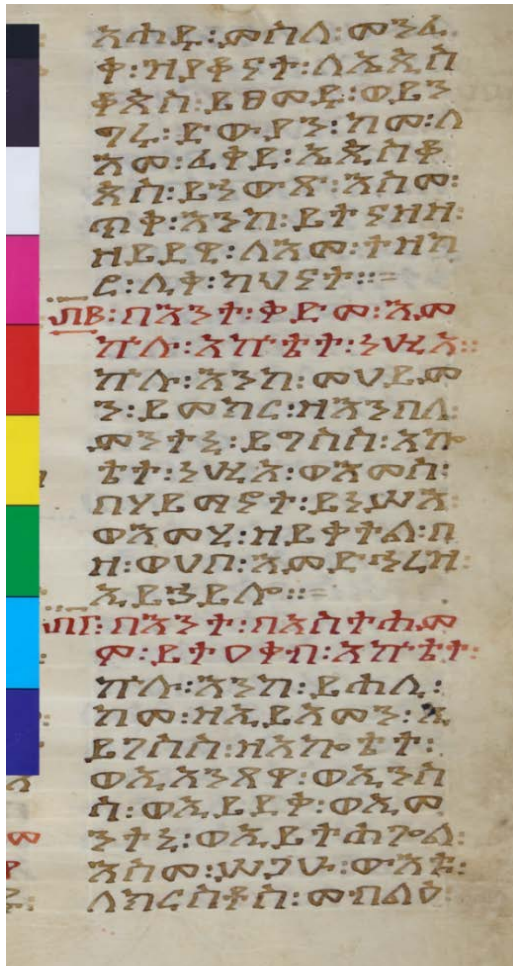 አሐዱ፡መስለ፡መንፈ
ቅ፡ዝያቆናት፡ለኤጲስ
ቆጶስ፡ይፀመድ፡ወይን
ግሩ፡ድውያን፡ከመ፡ለ
እመ፡ፈቀደ፡ኤጲስቆ
ጶስ፡ይነውጽ፡እስመ፡
ጥቀ፡እንከ፡ይትናዘዝ፡
ዘይደዊ፡ለእመ፡ተዘከ
ሮ፡ሊቀ፡ካህናት።
፴፪፡በእንተ፡ቅድመ፡እም
ኵሉ፡አኰቴተ፡ንሣእ።
ኵሉ፡እንከ፡መሃይም
ን፡ይመክር፡ዘእንበለ፡
ምንትኒ፡ይግስስ፡አኰ
ቴተ፡ንሣእ፡ወእመሰ፡
በሃይማኖት፡ይነሥእ፡
ወእመሂ፡ዘይቀትል፡በ
ዘ፡ወሀበ፡እምድኅረዝ፡
ኢይኄይሎ።
፴፫፡በእንተ፡በአስተሐም
ሞ፡ይትዐቀብ፡አኰቴት፡
ኵሉ፡እንከ፡ይሐሊ፡
ከመ፡ዘኢይአመን፡ኢ
ይገስስ፡ዘአኰቴት፡
ወኢአንጼዋ፡ወኢንስ
ስ፡ወኢይደቅ፡ወኢም
ንትኒ፡ወኢይትሐጐል፡
እስመ፡ሥጋሁ፡ውእቱ፡
ለክርስቶስ፡መብልዕ፡